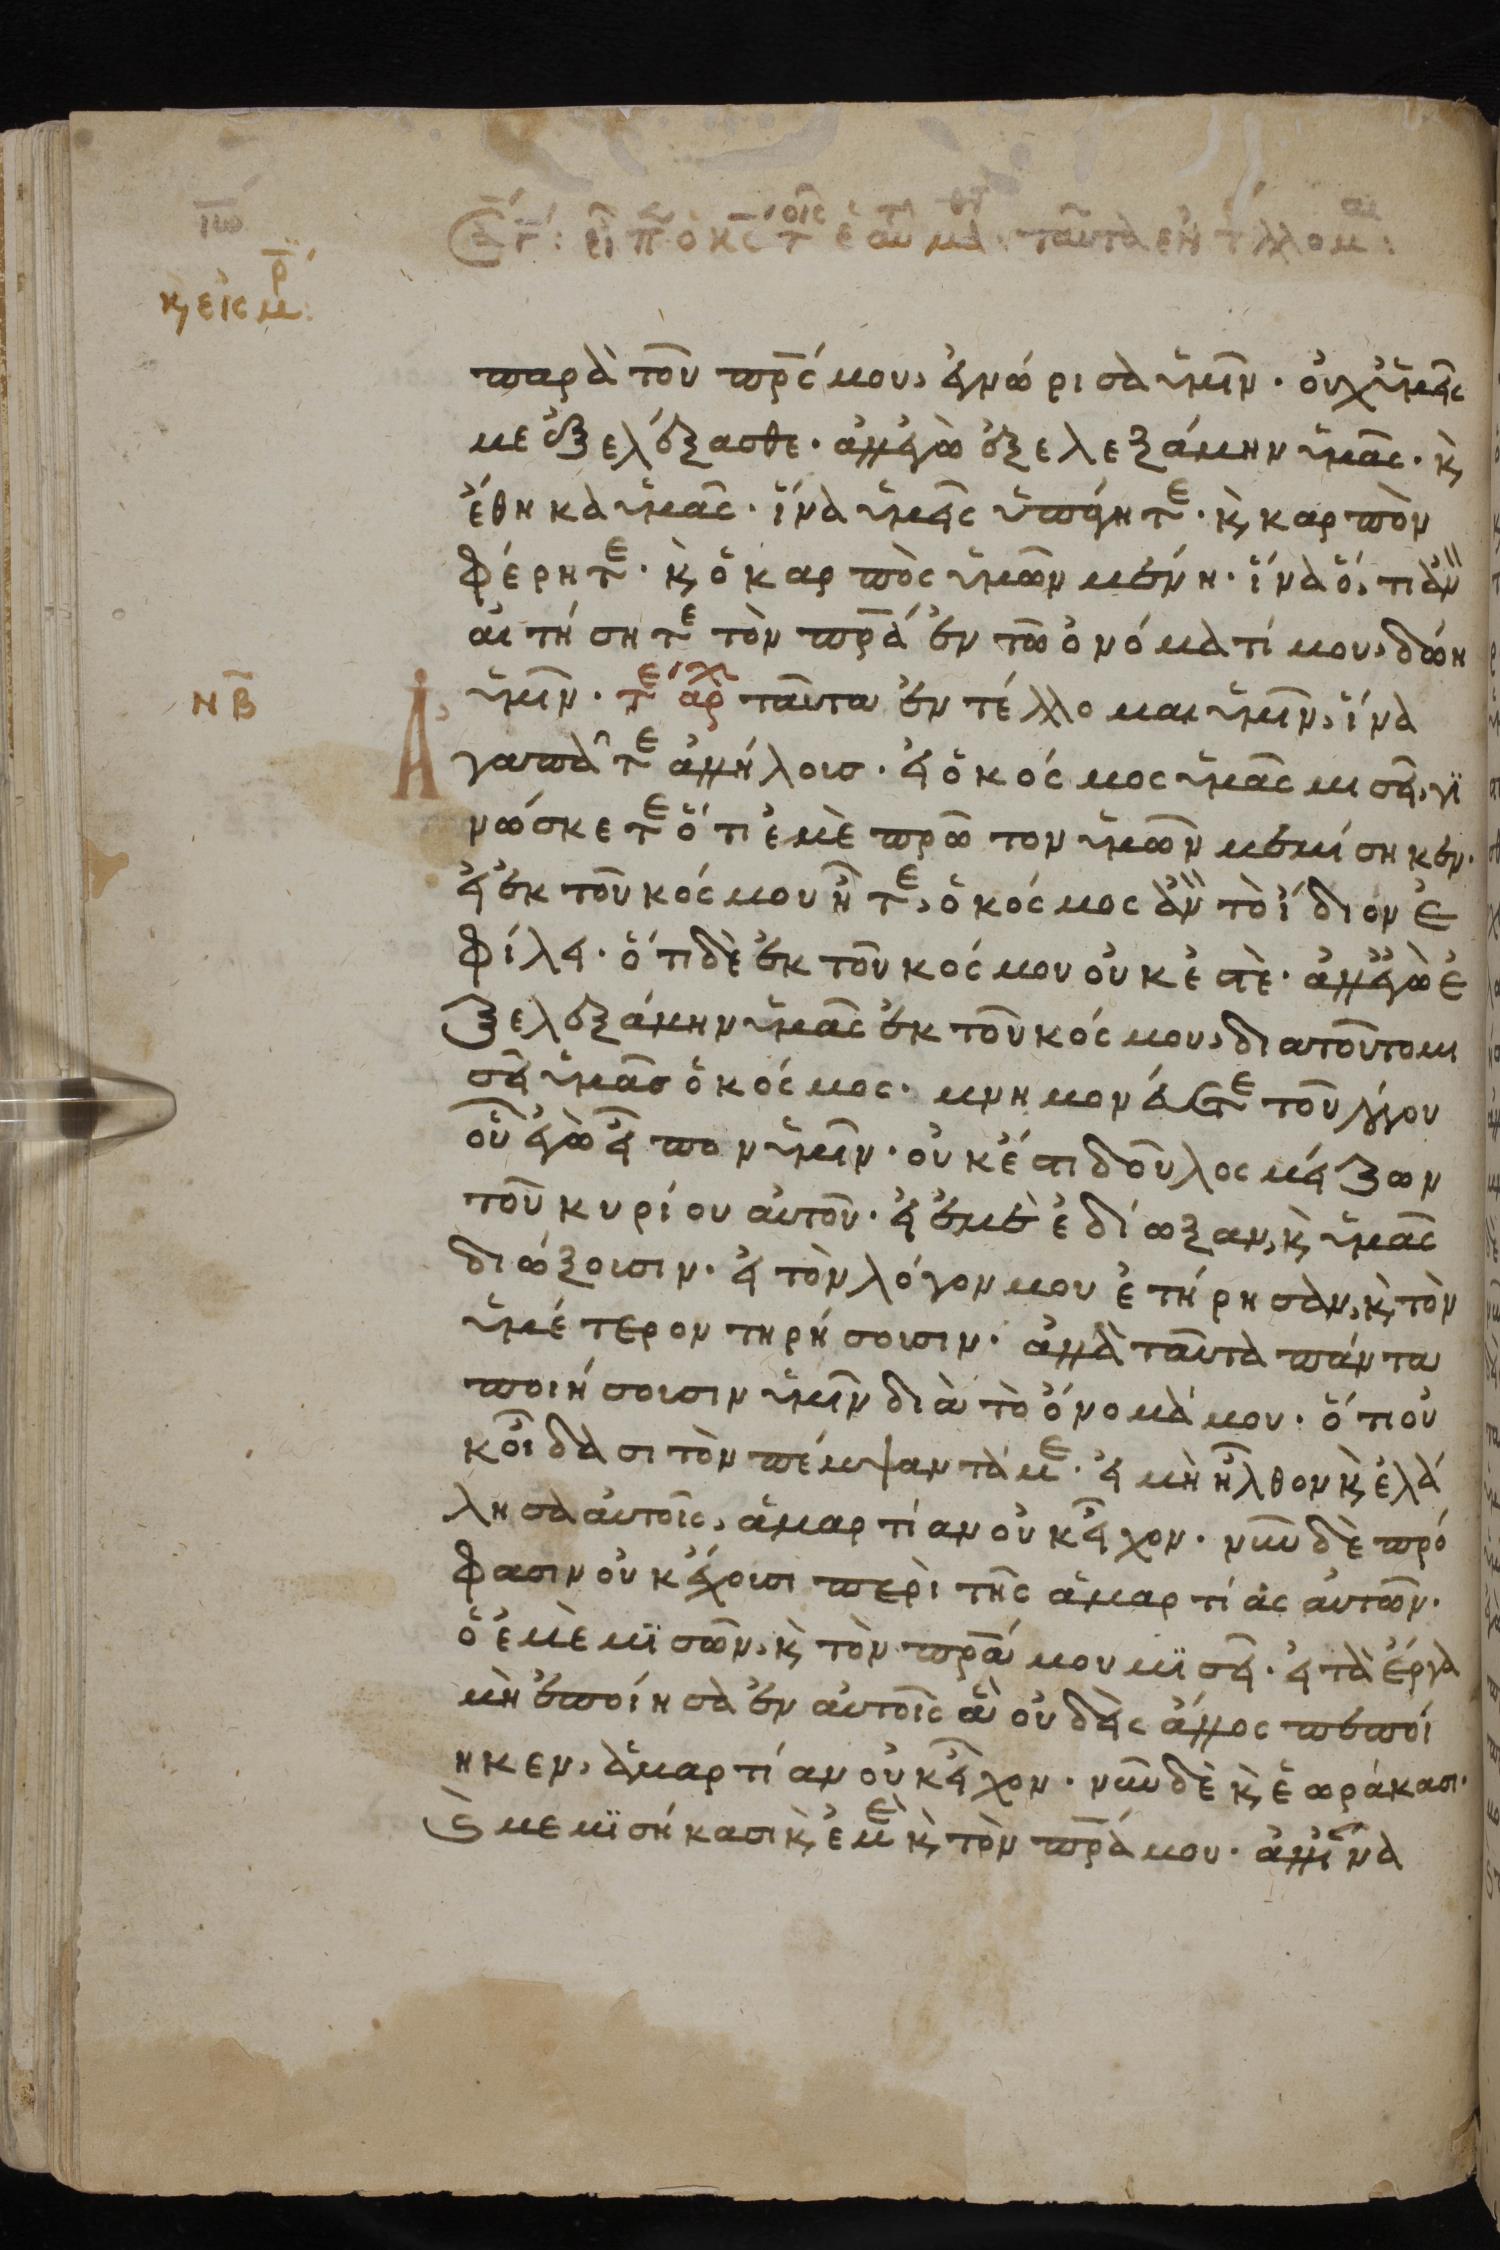 κ εἰς μρ:
παρὰ τοῦ πρς μου, ἐγνώρισα ὑμῖν. οὐχ ὑμεῖς
με ἐξελέξασθε. ἀλλ' ἐγὼ ἐξελεξάμην ὑμᾶς. κ
ἔθηκα ὑμᾶς. ἵνα ὑμεῖς ὑπάγητε. κ καρπὸν
φέρητε. κ ὁ καρπὸς ὑμῶν μένη. ἵνα ὅ, τι ἂν
αἰτήσητε τὸν πρα ἐν τῶ ὀνόματί μου, δώη
νβ ὑμῖν. τε αρχ ταῦτα ἐντέλλομαι ὑμῖν, ἵνα
ἀγαπᾶτε ἀλλήλοισ. εἰ ὁ κόσμος ὑμᾶς μισεῖ, γϊ
νώσκετε ὅτι ἐμὲ πρῶτον ὑμῶν μεμίσηκεν.
εἰ ἐκ τοῦ κόσμου ἦτε, ὁ κόσμος ἂν τὸ ἴδιον ἐ
φίλει. ὅτι δὲ ἐκ τοῦ κόσμου οὐκ ἐστὲ. ἀλλ' ἐγὼ ἐ
ξελεξάμην ὑμᾶς ἐκ τοῦ κόσμου, διατοῦτο μι
σεῖ ὑμᾶσ ὁ κόσμος. μνημονεύετε τοῦ λόγου
οὗ ἐγὼ εἶπον ὑμῖν. οὐκ ἔστι δοῦλος μείζων
τοῦ κυρίου αὐτοῦ. εἰ ἐμὲ ἐδίωξαν, κ ὑμᾶς
διώξουσιν. εἰ τὸν λόγον μου ἐτήρησαν, κ τὸν
ὑμέτερον τηρήσουσιν. ἀλλὰ ταῦτα πάντα
ποιήσουσιν ὑμῖν διὰ τὸ ὄνομά μου. ὅτι οὐ
κ οἴδασι τὸν πέμψαντά με. εἰ μὴ ἦλθον κ ἐλά
λησα αὐτοῖς, ἁμαρτίαν οὐκ εἶχον. νῦν δὲ πρό
φασιν οὐκ ἔχουσι περὶ τῆς ἁμαρτίας αὐτῶν.
ὁ ἐμὲ μϊσῶν, κ τὸν πρα μου μϊσεῖ. εἰ τὰ ἔργα
μὴ ἐποίησα ἐν αὐτοῖς ἃ οὐδεὶς ἄλλος πεποί
ηκεν, ἁμαρτίαν οὐκ εἶχον. νῦν δὲ κ ἑωράκασι.
κ μεμϊσήκασι κ ἐμὲ κ τὸν πρα μου. ἀλλ' ἵνα